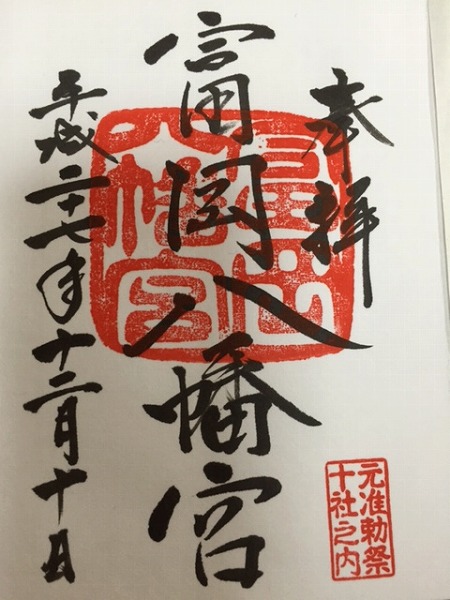 奉拝
富岡八幡宮
富岡八幡宮
平成二十七年十二月十日
元准勅祭
十社之内